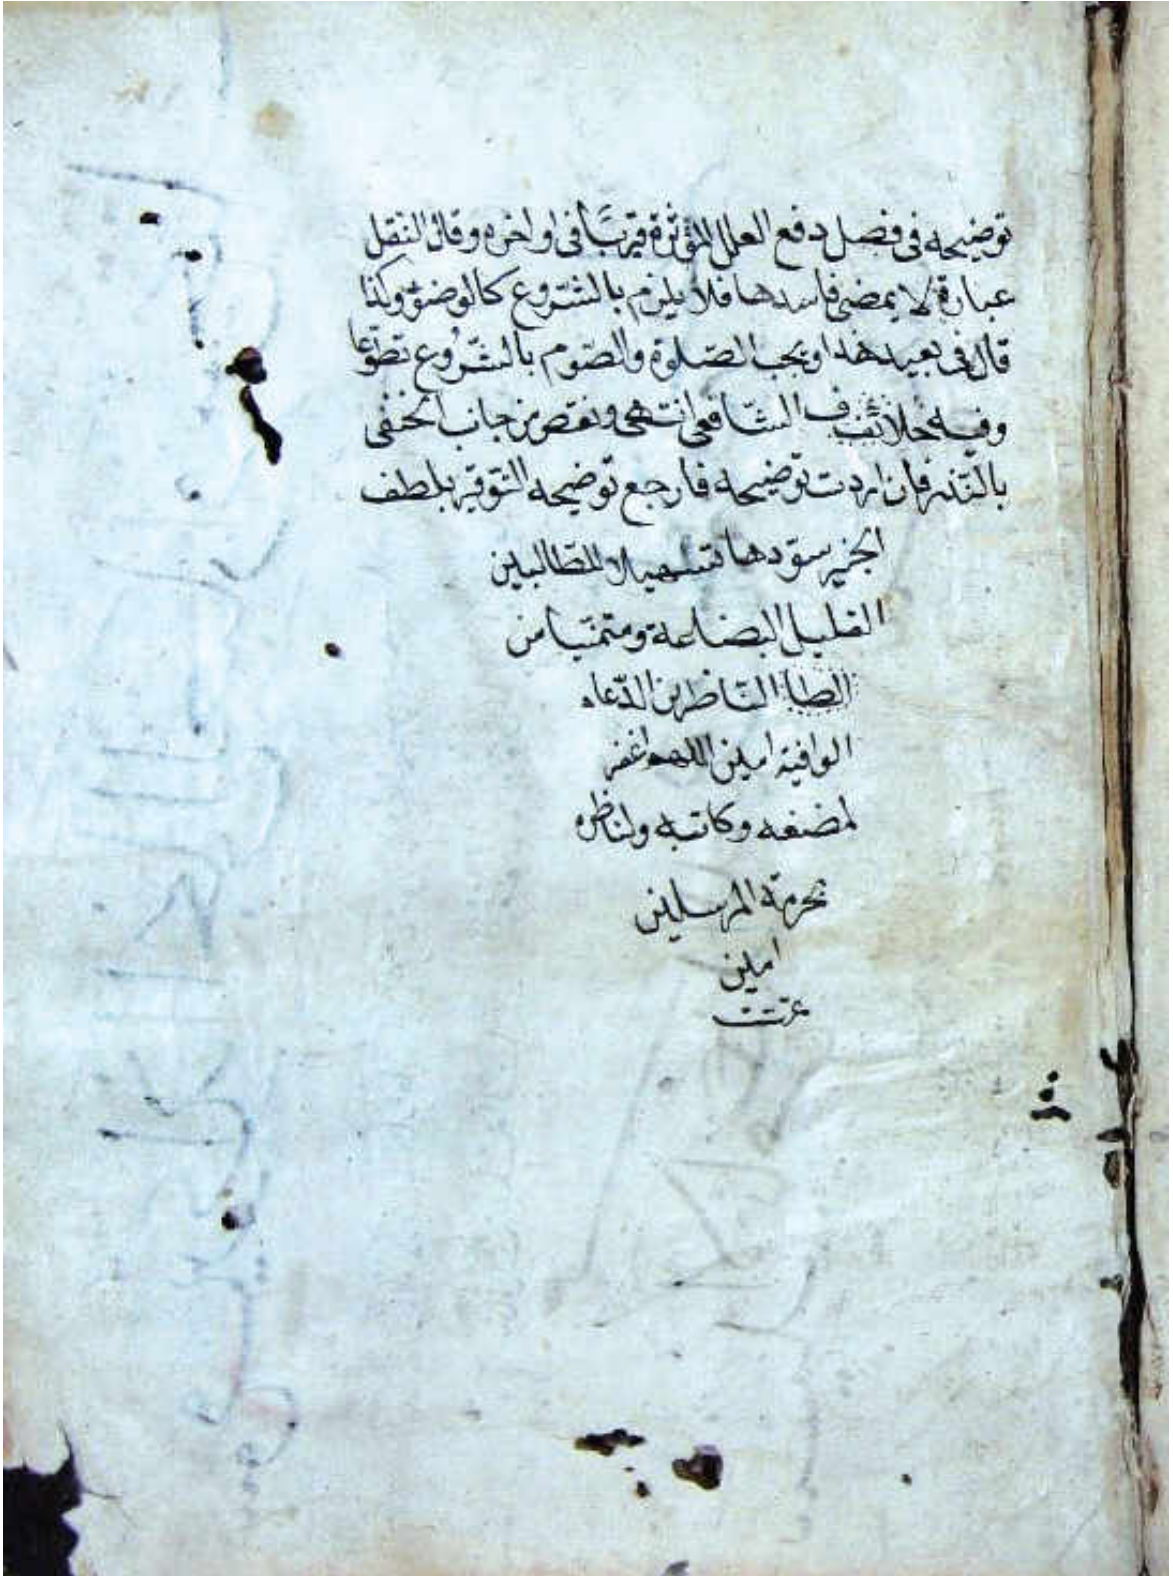 توضيحه في فصل دفع العلل المؤثرة قريبًا في اواخره وقال النفل
عبارة لا يمضى فاسدها فلا يلزم بالشّروع كالوضوء وكذا
قال في بعيد هذا ويجب الصّلوة والصّوم بالشّروع تطوّعا
وفيه خلاف الشّافعى انتهى ونقض من جانب الحنفى
بالنّذر فان اردت توضيحه فارجع توضيحه التوقير بلطف
الخبير سوّدها تسهيلا للطّالبين
القليل البضاعة ومتمنّيا من
النّاظرين الدّعاء
الوافية امين اللهم اغفر
لمصنفه وكاتبه ولناظره
بحرمة المرسلين
امين
تمت